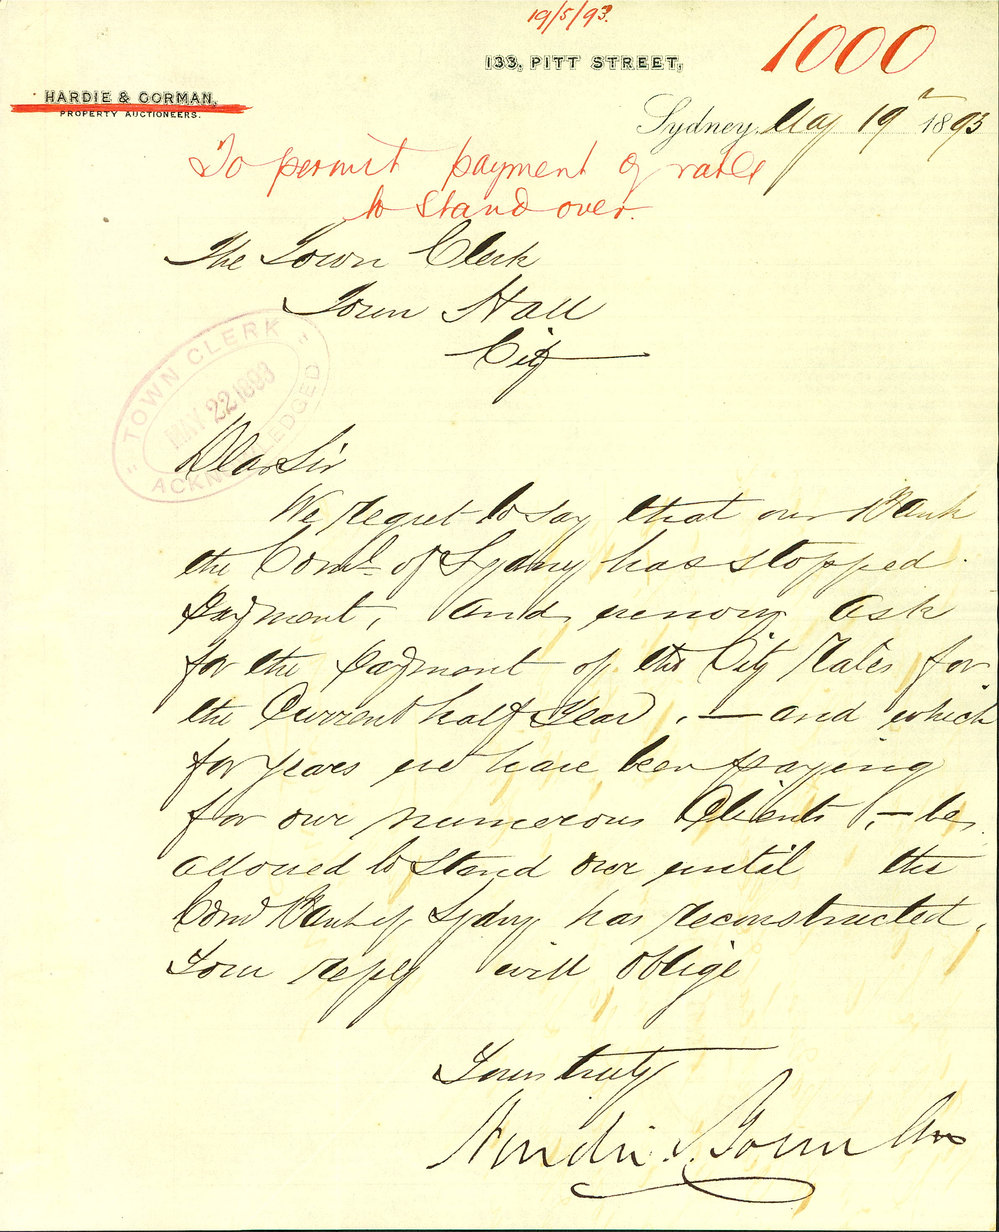 19/5/93.
1000
133, PITT STREET,
HARDIE & GORMAN,
PROPERTY AUCTIONEERS.
Sydney, May 19th 1893
To permit payment of rates
to stand over.
The Town Clerk
Town Hall
City
TOWN CLERK
MAY 22 1893
ACKNOWLEDGED
Dear Sir
We regret to say that our Bank
the Coml. of Sydney has stopped
payment, and we now ask
for the payment of the City Rates for
the Current half Year, — and which
for years we have been paying
for our numerous Clients, — be
allowed to stand over until the
Coml Bank of Sydney has reconstructed.
Your reply will oblige
Yours truly
Hardie & Gorman